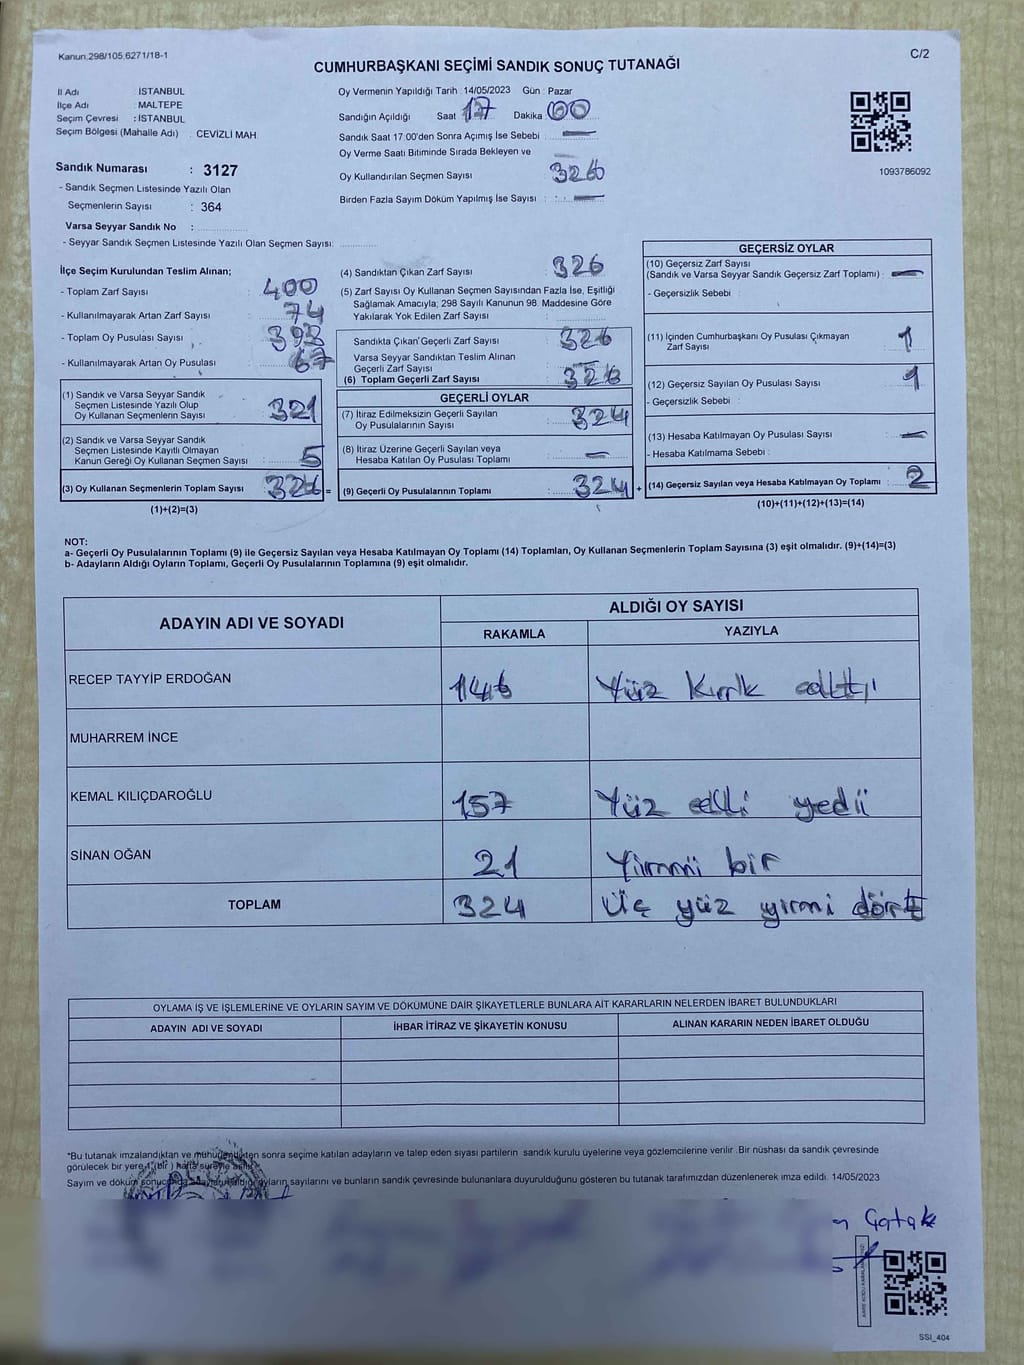 Kanun.298/105.6271/18-1
C/2
CUMHURBAŞKANI SEÇİMİ SANDIK SONUÇ TUTANAĞI
İl Adı : İSTANBUL
İlçe Adı : MALTEPE
Seçim Çevresi : İSTANBUL
Seçim Bölgesi (Mahalle Adı) : CEVİZLİ MAH.
Sandık Numarası : 3127
- Sandık Seçmen Listesinde Yazılı Olan
Seçmenlerin Sayısı : 364
Varsa Seyyar Sandık No :
- Seyyar Sandık Seçmen Listesinde Yazılı Olan Seçmen Sayısı:
Oy Vermenin Yapıldığı Tarih : 14/05/2023 Gün : Pazar
Sandığın Açıldığı Saat 17 Dakika 00
Sandık Saat 17:00'den Sonra Açımış İse Sebebi : —
Oy Verme Saati Bitiminde Sırada Bekleyen ve
Oy Kullandırılan Seçmen Sayısı 326
Birden Fazla Sayım Döküm Yapılmış İse Sayısı : —
1093786092
İlçe Seçim Kurulundan Teslim Alınan;
- Toplam Zarf Sayısı : 400
- Kullanılmayarak Artan Zarf Sayısı : 74
- Toplam Oy Pusulası Sayısı : 393
- Kullanılmayarak Artan Oy Pusulası : 67
(1) Sandık ve Varsa Seyyar Sandık
Seçmen Listesinde Yazılı Olup
Oy Kullanan Seçmenlerin Sayısı : 321
(2) Sandık ve Varsa Seyyar Sandık
Seçmen Listesinde Kayıtlı Olmayan
Kanun Gereği Oy Kullanan Seçmen Sayısı : 5
(3) Oy Kullanan Seçmenlerin Toplam Sayısı : 326 =
(1)+(2)=(3)
(4) Sandıktan Çıkan Zarf Sayısı : 326
(5) Zarf Sayısı Oy Kullanan Seçmen Sayısından Fazla İse, Eşitliği
Sağlamak Amacıyla; 298 Sayılı Kanunun 98. Maddesine Göre
Yakılarak Yok Edilen Zarf Sayısı :
Sandıkta Çıkan Geçerli Zarf Sayısı : 326
Varsa Seyyar Sandıktan Teslim Alınan
Geçerli Zarf Sayısı : —
(6) Toplam Geçerli Zarf Sayısı : 326
GEÇERLİ OYLAR
(7) İtiraz Edilmeksizin Geçerli Sayılan
Oy Pusulalarının Sayısı : 324
(8) İtiraz Üzerine Geçerli Sayılan veya
Hesaba Katılan Oy Pusulası Toplamı : —
(9) Geçerli Oy Pusulalarının Toplamı : 324 +
GEÇERSİZ OYLAR
(10) Geçersiz Zarf Sayısı
(Sandık ve Varsa Seyyar Sandık Geçersiz Zarf Toplamı) : —
- Geçersizlik Sebebi :
(11) İçinden Cumhurbaşkanı Oy Pusulası Çıkmayan
Zarf Sayısı : 1
(12) Geçersiz Sayılan Oy Pusulası Sayısı : 1
- Geçersizlik Sebebi :
(13) Hesaba Katılmayan Oy Pusulası Sayısı : —
- Hesaba Katılmama Sebebi :
(14) Geçersiz Sayılan veya Hesaba Katılmayan Oy Toplamı : 2
(10)+(11)+(12)+(13)=(14)
NOT:
a- Geçerli Oy Pusulalarının Toplamı (9) ile Geçersiz Sayılan veya Hesaba Katılmayan Oy Toplamı (14) Toplamları, Oy Kullanan Seçmenlerin Toplam Sayısına (3) eşit olmalıdır. (9)+(14)=(3)
b- Adayların Aldığı Oyların Toplamı, Geçerli Oy Pusulalarının Toplamına (9) eşit olmalıdır.
ADAYIN ADI VE SOYADI
ALDIĞI OY SAYISI
RAKAMLA YAZIYLA
RECEP TAYYİP ERDOĞAN 146 Yüz Kırk altı
MUHARREM İNCE
KEMAL KILIÇDAROĞLU 157 Yüz elli yedi
SİNAN OĞAN 21 Yirmi bir
TOPLAM 324 Üç yüz yirmi dört
OYLAMA İŞ VE İŞLEMLERİNE VE OYLARIN SAYIM VE DÖKÜMÜNE DAİR ŞİKAYETLERLE BUNLARA AİT KARARLARIN NELERDEN İBARET BULUNDUKLARI
ADAYIN ADI VE SOYADI İHBAR İTİRAZ VE ŞİKAYETİN KONUSU ALINAN KARARIN NEDEN İBARET OLDUĞU
*Bu tutanak imzalandıktan ve mühürlendikten sonra seçime katılan adayların ve talep eden siyasi partilerin sandık kurulu üyelerine veya gözlemcilerine verilir. Bir nüshası da sandık çevresinde
görülecek bir yere 1 (bir) hafta süreyle asılır.
Sayım ve döküm oyların sayılarını ve bunların sandık çevresinde bulunanlara duyurulduğunu gösteren bu tutanak tarafımızdan düzenlenerek imza edildi. 14/05/2023
Çatak
SSI_404